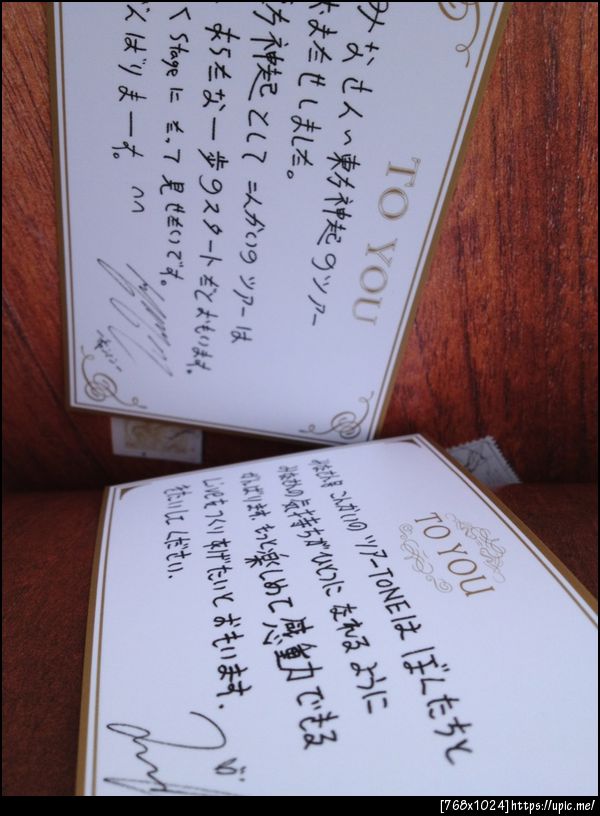 TO YOU
みなさん〜 東方神起のツアー
おまたせしました。
東方神起として こんかいのツアーは
あらたな一歩のスタートだとおもいます。
Stageに 立って 見せたいです。
がんばりまーす。 ∩∩
TO YOU
みなさん こんかいのツアーTONEは ぼくたちと
みなさんの 気持ちが ひとつに なれる ように
がんばります。 もっと 楽しめて 感動力できる
Liveを つくり あげたいと おもいます。
きたいして ください。
[768x1024]https://upic.me/